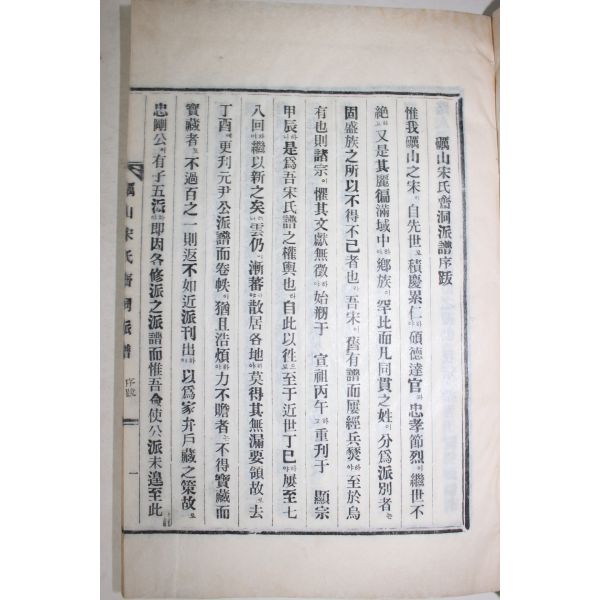 礪山宋氏齋洞派譜序跋
惟我礪山之宋이自先世로積慶累仁하야碩德達官과忠孝節烈이繼世不
絶하고又是其麗徧滿域中하야鄕族이罕比而凡同貫之姓이分爲派別者는
固盛族之所以不得不已者也라吾宋이舊有譜而屢經兵燹하야至於烏
有也則諸宗이懼其文獻無徵하야始刱于 宣祖丙午하고重刊于 顯宗
甲辰하니是爲吾宋氏譜之權輿也라自此以往으로至于近世丁巳하야屢至七
八回하야繼以新之矣니雲仍이漸蕃하야散居各地하야莫得其無漏要領故로去
丁酉에更刊元尹公派譜而卷帙이猶且浩煩하야力不贍者는不得寶藏而
寶藏者도不過百之一則返不如近派刊出하야以爲家弆戶藏之策故로
忠剛公이有子五派하야即因各修派之派譜而惟吾僉使公派未遑至此
礪山宋氏齋洞派譜 序跋 一